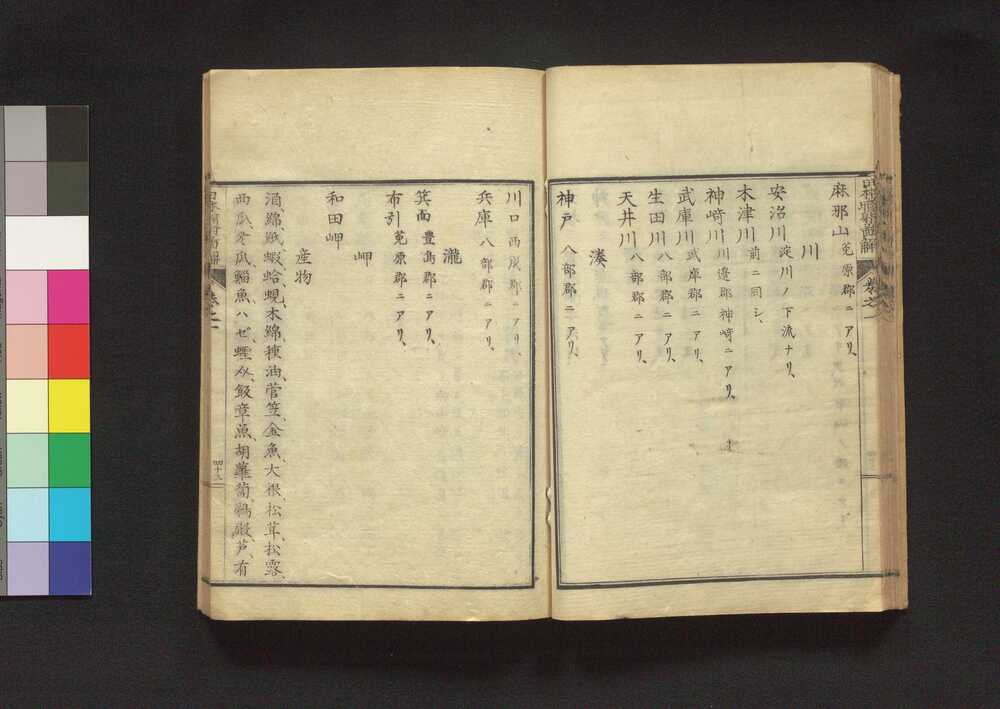 麻那山 菟原郡ニアリ、
川
安治川 淀川ノ下流ナリ、
木津川 前ニ同シ、
神崎川 川邊郡神崎ニアリ、
武庫川 武庫郡ニアリ、
生田川 八部郡ニアリ、
天井川 八部郡ニアリ、
湊
神戸 八部郡ニアリ、
川口 西成郡ニアリ、
兵庫 八部郡ニアリ、
瀧
箕面 豊島郡ニアリ、
布引 菟原郡ニアリ、
岬
和田岬
産物
酒、綿、紙、蝦、蛤、蜆、木綿、種油、菅笠、金魚、大根、松茸、松露、
西瓜、
魚、ハゼ、
飯章魚、胡蘿蔔、
芦、有
四十九